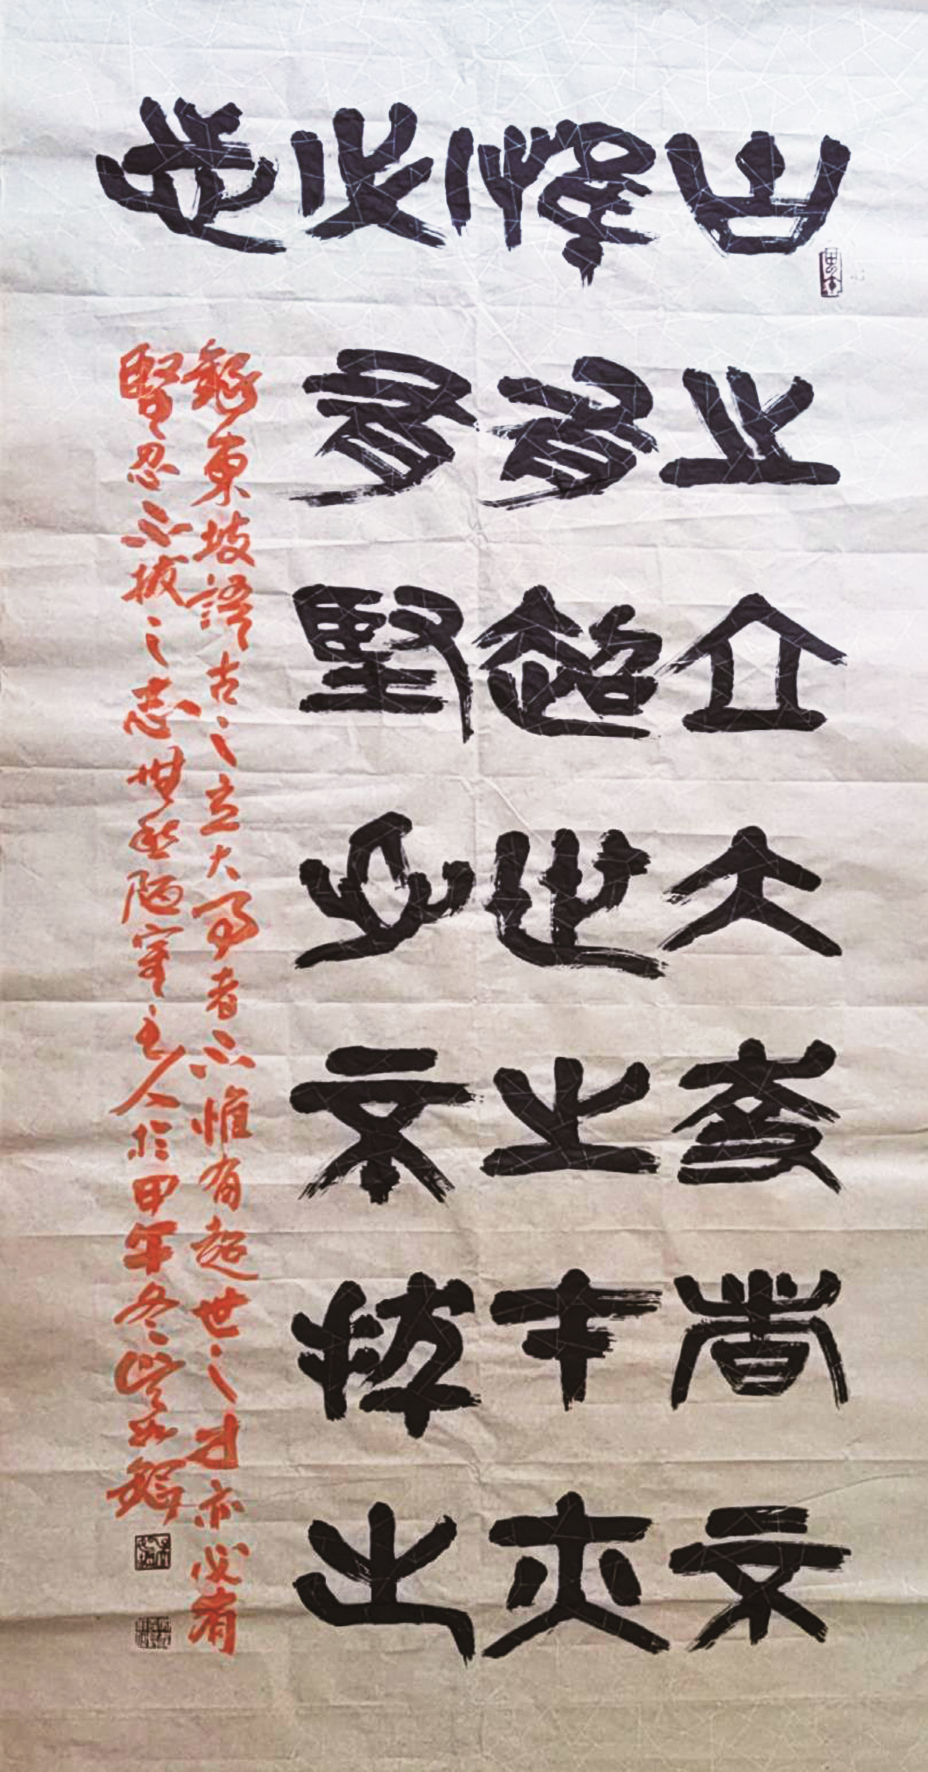 古之立大事者不
惟有超世之才亦
必有堅忍不拔之
志
錄東坡語古之立大事者不惟有超世之才亦必有
堅忍不拔之志陋室主人於甲午冬